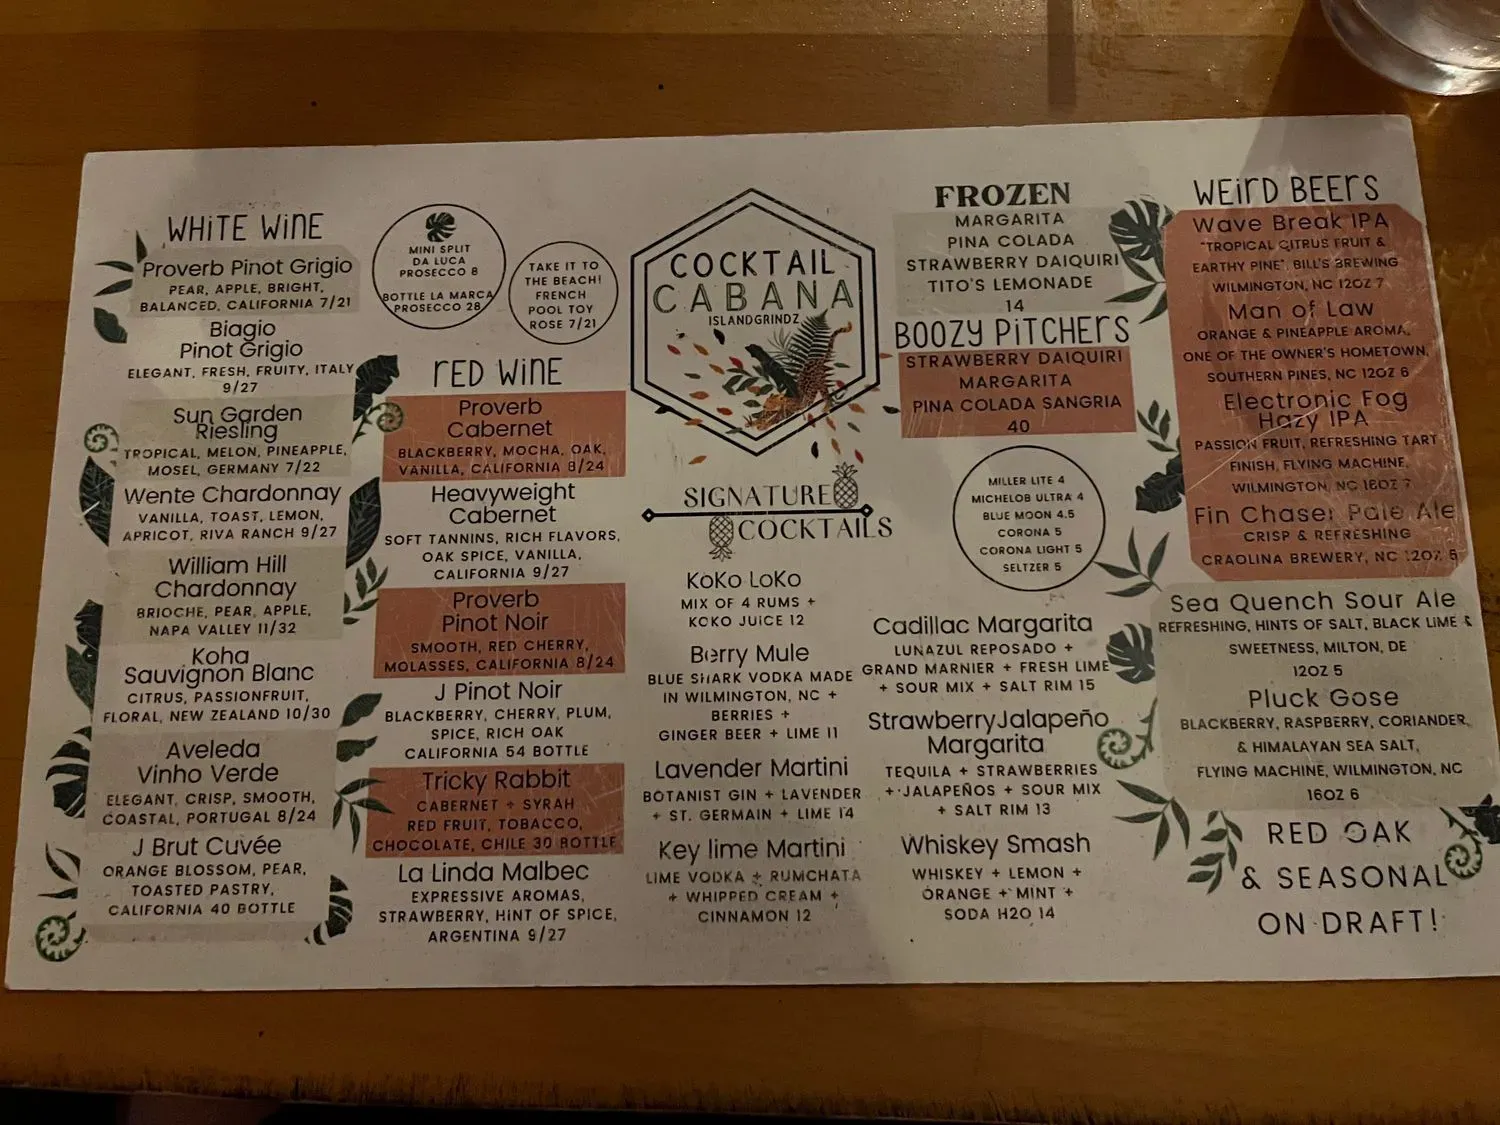 WHITE WINE
Proverb Pinot Grigio
PEAR, APPLE, BRIGHT,
BALANCED, CALIFORNIA 7/21
Biagio
Pinot Grigio
ELEGANT, FRESH, FRUITY, ITALY
9/27
Sun Garden
Riesling
TROPICAL, MELON, PINEAPPLE,
MOSEL, GERMANY 7/22
Wente Chardonnay
VANILLA, TOAST, LEMON,
APRICOT, RIVA RANCH 9/27
William Hill
Chardonnay
BRIOCHE, PEAR, APPLE,
NAPA VALLEY 11/32
Koha
Sauvignon Blanc
CITRUS, PASSIONFRUIT,
FLORAL, NEW ZEALAND 10/30
Aveleda
Vinho Verde
ELEGANT, CRISP, SMOOTH,
COASTAL, PORTUGAL 8/24
J Brut Cuvée
ORANGE BLOSSOM, PEAR,
TOASTED PASTRY,
CALIFORNIA 40 BOTTLE
MINI SPLIT
DA LUCA
PROSECCO 8
BOTTLE LA MARCA
PROSECCO 28
TAKE IT TO
THE BEACH!
FRENCH
POOL TOY
ROSE 7/21
RED WINE
Proverb
Cabernet
BLACKBERRY, MOCHA, OAK,
VANILLA, CALIFORNIA 8/24
Heavyweight
Cabernet
SOFT TANNINS, RICH FLAVORS,
OAK SPICE, VANILLA,
CALIFORNIA 9/27
Proverb
Pinot Noir
SMOOTH, RED CHERRY,
MOLASSES, CALIFORNIA 8/24
J Pinot Noir
BLACKBERRY, CHERRY, PLUM,
SPICE, RICH OAK
CALIFORNIA 54 BOTTLE
Tricky Rabbit
CABERNET + SYRAH
RED FRUIT, TOBACCO,
CHOCOLATE, CHILE 30 BOTTLE
La Linda Malbec
EXPRESSIVE AROMAS,
STRAWBERRY, HINT OF SPICE,
ARGENTINA 9/27
COCKTAIL
CABANA
ISLANDGRINDZ
SIGNATURE
COCKTAILS
KoKo LoKo
MIX OF 4 RUMS +
KOKO JUICE 12
Berry Mule
BLUE SHARK VODKA MADE
IN WILMINGTON, NC +
BERRIES +
GINGER BEER + LIME 11
Lavender Martini
BOTANIST GIN + LAVENDER
+ ST. GERMAIN + LIME 14
Key lime Martini
LIME VODKA + RUMCHATA
+ WHIPPED CREAM +
CINNAMON 12
FROZEN
MARGARITA
PINA COLADA
STRAWBERRY DAIQUIRI
TITO'S LEMONADE
14
BOOZY PITCHERS
STRAWBERRY DAIQUIRI
MARGARITA
PINA COLADA SANGRIA
40
MILLER LITE 4
MICHELOB ULTRA 4
BLUE MOON 4.5
CORONA 5
CORONA LIGHT 5
SELTZER 5
Cadillac Margarita
LUNAZUL REPOSADO +
GRAND MARNIER + FRESH LIME
+ SOUR MIX + SALT RIM 15
StrawberryJalapeño
Margarita
TEQUILA + STRAWBERRIES
+ JALAPEÑOS + SOUR MIX
+ SALT RIM 13
Whiskey Smash
WHISKEY + LEMON +
ORANGE + MINT +
SODA H2O 14
WEIRD BEERS
Wave Break IPA
"TROPICAL CITRUS FRUIT &
EARTHY PINE", BILL'S BREWING
WILMINGTON, NC 12OZ 7
Man of Law
ORANGE & PINEAPPLE AROMA,
ONE OF THE OWNER'S HOMETOWN,
SOUTHERN PINES, NC 12OZ 6
Electronic Fog
Hazy IPA
PASSION FRUIT, REFRESHING TART
FINISH, FLYING MACHINE,
WILMINGTON, NC 16OZ 7
Fin Chaser Pale Ale
CRISP & REFRESHING
CRAOLINA BREWERY, NC 12OZ 5
Sea Quench Sour Ale
REFRESHING, HINTS OF SALT, BLACK LIME &
SWEETNESS, MILTON, DE
12OZ 5
Pluck Gose
BLACKBERRY, RASPBERRY, CORIANDER,
& HIMALAYAN SEA SALT,
FLYING MACHINE, WILMINGTON, NC
16OZ 6
RED OAK
& SEASONAL
ON DRAFT!